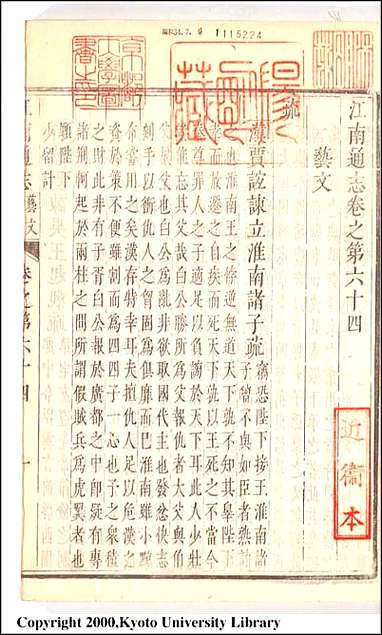 江南通志卷之第六十四
藝文
疏
漢賈誼諫立淮南諸子疏 竊恐陛下接王淮南諸
子曾不與如臣者孰計
之也淮南王之悖逆無道天下孰不知其辠陛下
幸而赦遷之自疾而死天下孰以王死之不當今
奉尊罪人之子適足以負謗於天下耳此人少壯
豈能忘其父哉白公勝所爲父報仇者大父與伯
父叔父也白公爲亂非欲取國代主也發忿快志
剡手以衝仇人之胷固爲俱靡而巴淮南雖小黥
布嘗用之矣漢存特幸耳夫擅仇人足以危漢之
資於策不便雖割而爲四四子一心也予之衆積
之財此非有子胥白公報於廣都之中即疑有專
諸荆軻起於兩柱之間所謂假賊兵爲虎翼者也
願陛下
少留計
江南通志 藝文 卷之第六十四 一
近衞本
京都帝國大學圖書之印
1115224
Copyright 2000,Kyoto University Library